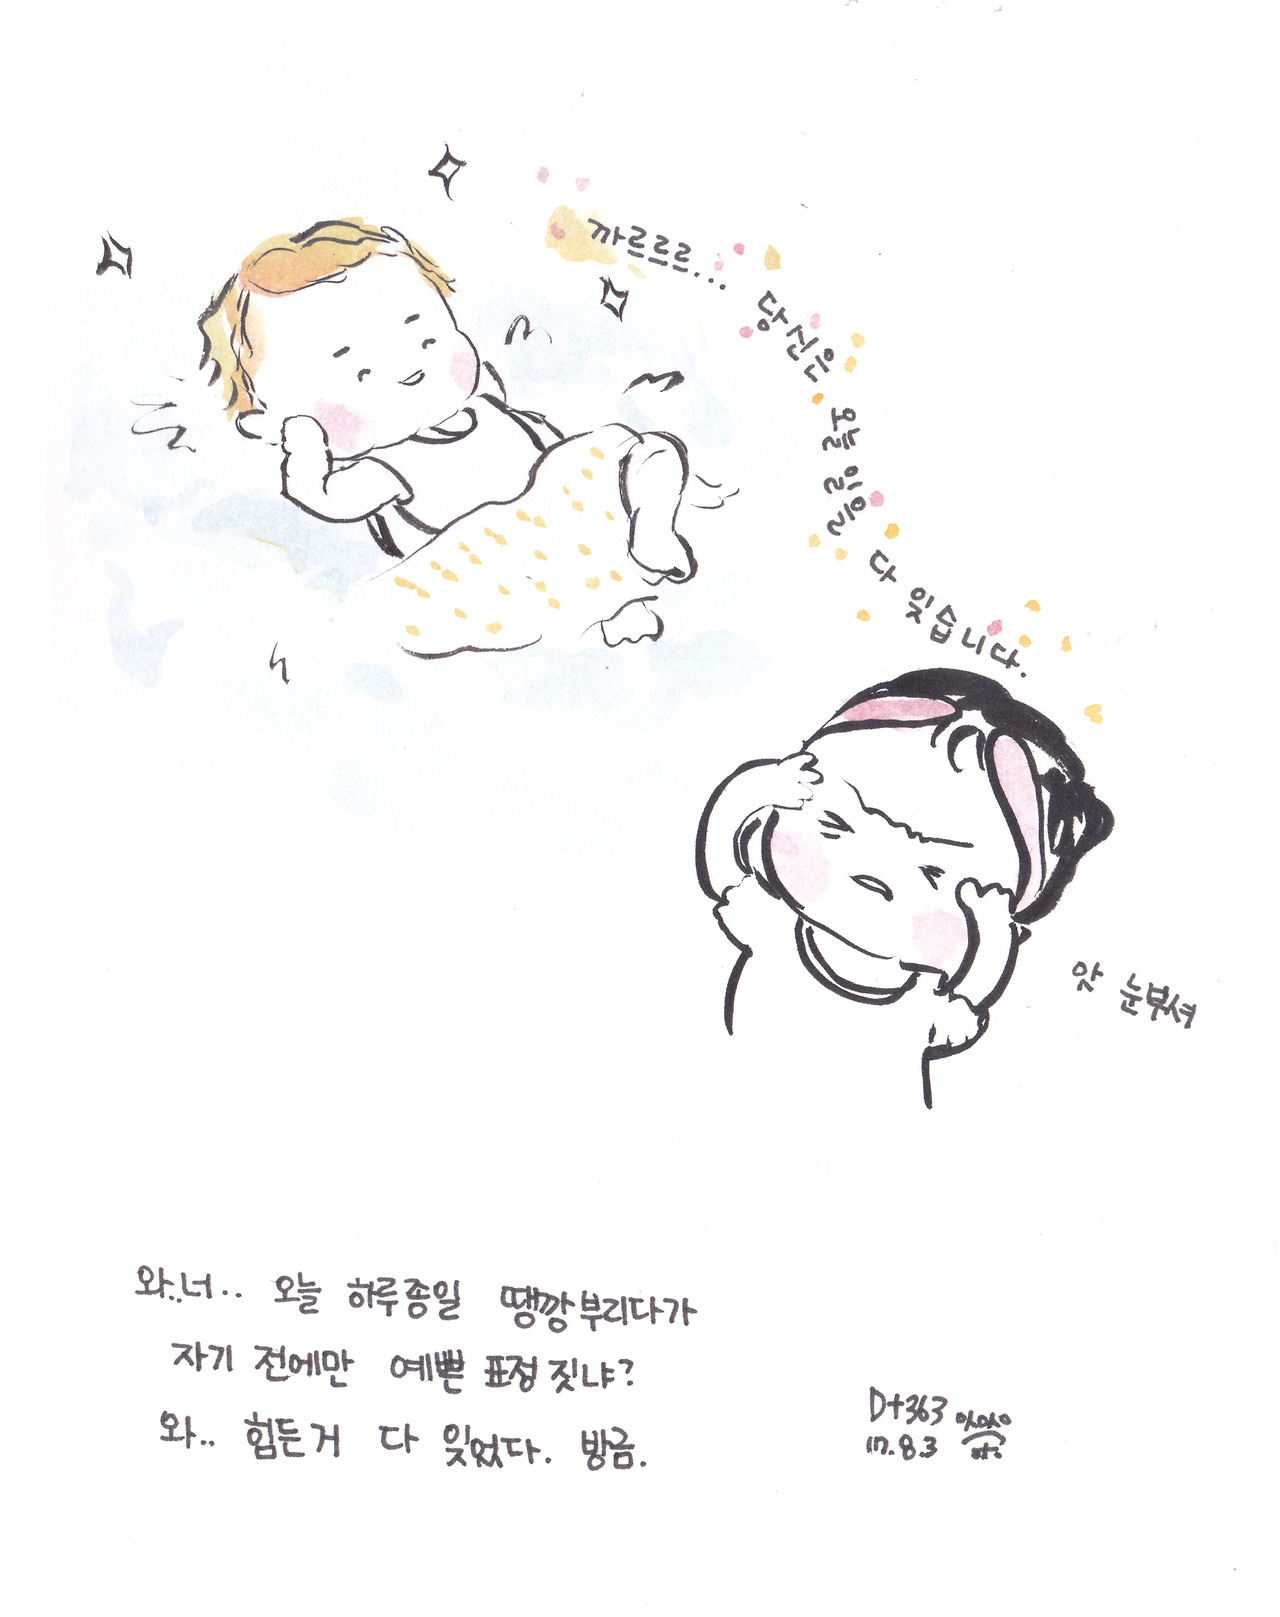 까르르르...
당신은 오늘 일을 다 잊습니다.
앗 눈부셔
와..너.. 오늘 하루종일 땡깡부리다가
자기 전에만 예쁜 표정 짓냐?
와.. 힘든거 다 잊었다. 방금.
D+363
17.8.3